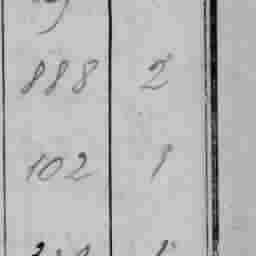 888 2
102 1